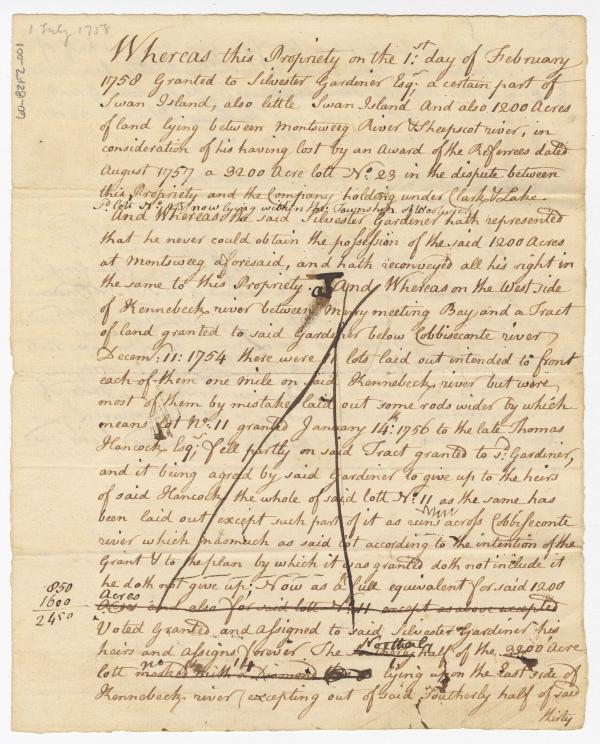 1 July 1758
60-B2F2-001
Whereas this Propriety on the 1st. day of February
1758 Granted to Silvester Gardiner Esqr. a certain part of
Swan Island, also little Swan Island And also 1200 Acres
of land lying between Montsweeg River & Sheepscot river, in
consideration of his having lost by an Award of the Referrees dated
August 1757 a 3200 Acre lott No. 23 in the dispute between
this Propriety and the Company holding under Clark & Lake
sd. lott No. 23 now lying within the Township of Woolwich
And Whereas the said Silvester Gardiner hath represented
that he never could obtain the possession of the said 1200 Acres
at Montsweeg aforesaid, and hath reconveyed all his right in
the same to this Propriety. And Whereas on the West side
of Kennebeck river between Merrymeeting Bay and a Tract
of land granted to said Gardiner below Cobbiseconte river
Decemr: 11: 1754 there were lots laid out intended to front
each of them one mile on said Kennebeck river but were
most of them by mistake laid out some rods wider by which
means Lot No. 11 granted January 14th 1756 to the late Thomas
Hancock Esqr. fell partly on said Tract granted to sd. Gardiner,
and it being agreed by said Gardiner to give up to the heirs
of said Hancock the whole of said lott No. 11 as the same has
been laid out except such part of it as runs across Cobbiseconte
river which inasmuch as said lot according to the intention of the
Grant & to the plan by which it was granted doth not include it
he doth not give up; Now as a full equivalent for said 1200
Acres
850
1600
2450
Acres and also for said lott No. 11 except as above excepted
Voted Granted and Assigned to said Silvester Gardiner his
heirs and Assigns forever The Northerly half of the 3200 Acre
lott marked with a Diamond lying upon the East side of
no 14
Kennebeck river (excepting out of said Southerly half of said
thirty